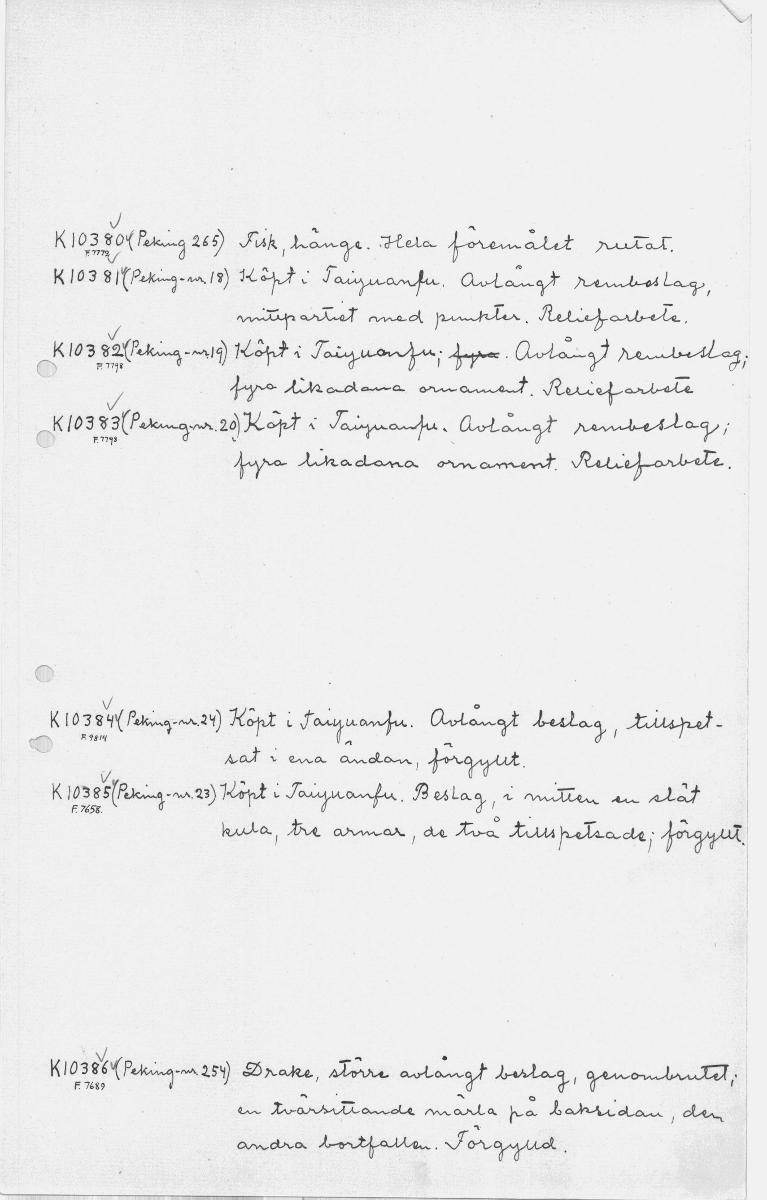 K10380 (Peking 265) Fisk, hänge. Hela föremålet rutat.
F. 7772
K10381 (Peking-nr. 18) Köpt i Taiyuanfu. Avlångt rembeslag,
mittpartiet med punkter. Reliefarbete.
K10382 (Peking-nr. 19) Köpt i Taiyuanfu; fyra. Avlångt rembeslag;
F. 7798
fyra likadana ornament. Reliefarbete
K10383 (Peking-nr. 20) Köpt i Taiyuanfu. Avlångt rembeslag;
F. 7793
fyra likadana ornament. Reliefarbete.
K10384 (Peking-nr. 24) Köpt i Taiyuanfu. Avlångt beslag, tillspet-
F. 9814
sat i ena ändan, förgyllt.
K10385 (Peking-nr. 23) Köpt i Taiyuanfu. Beslag, i mitten en slät
F. 7658.
kula, tre armar, de två tillspetsade; förgyllt.
K10386 (Peking-nr 254) Drake, större avlångt beslag, genombrutet;
F. 7689
en tvärsittande märla på baksidan, den
andra bortfallen. Förgylld.